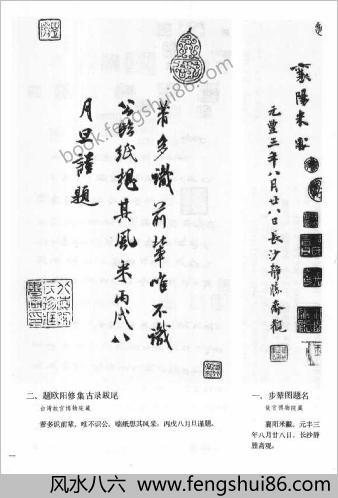 襄陽米黻
元豐三年八月廿八日長沙靜勝齋觀
芾多識前輩唯不識
公臨紙想其風采丙戌八
月旦謹題
book.fengshui86.com
一、步辇图题名
故宫博物院藏
襄阳米黻，元丰三
年八月廿八日，长沙静
胜斋观。
二、题欧阳修集古录跋尾
台湾故宫博物院藏
芾多识前辈，唯不识公，临纸想其风采。丙戌八月旦谨题。
一
风水八六 www.fengshui86.com